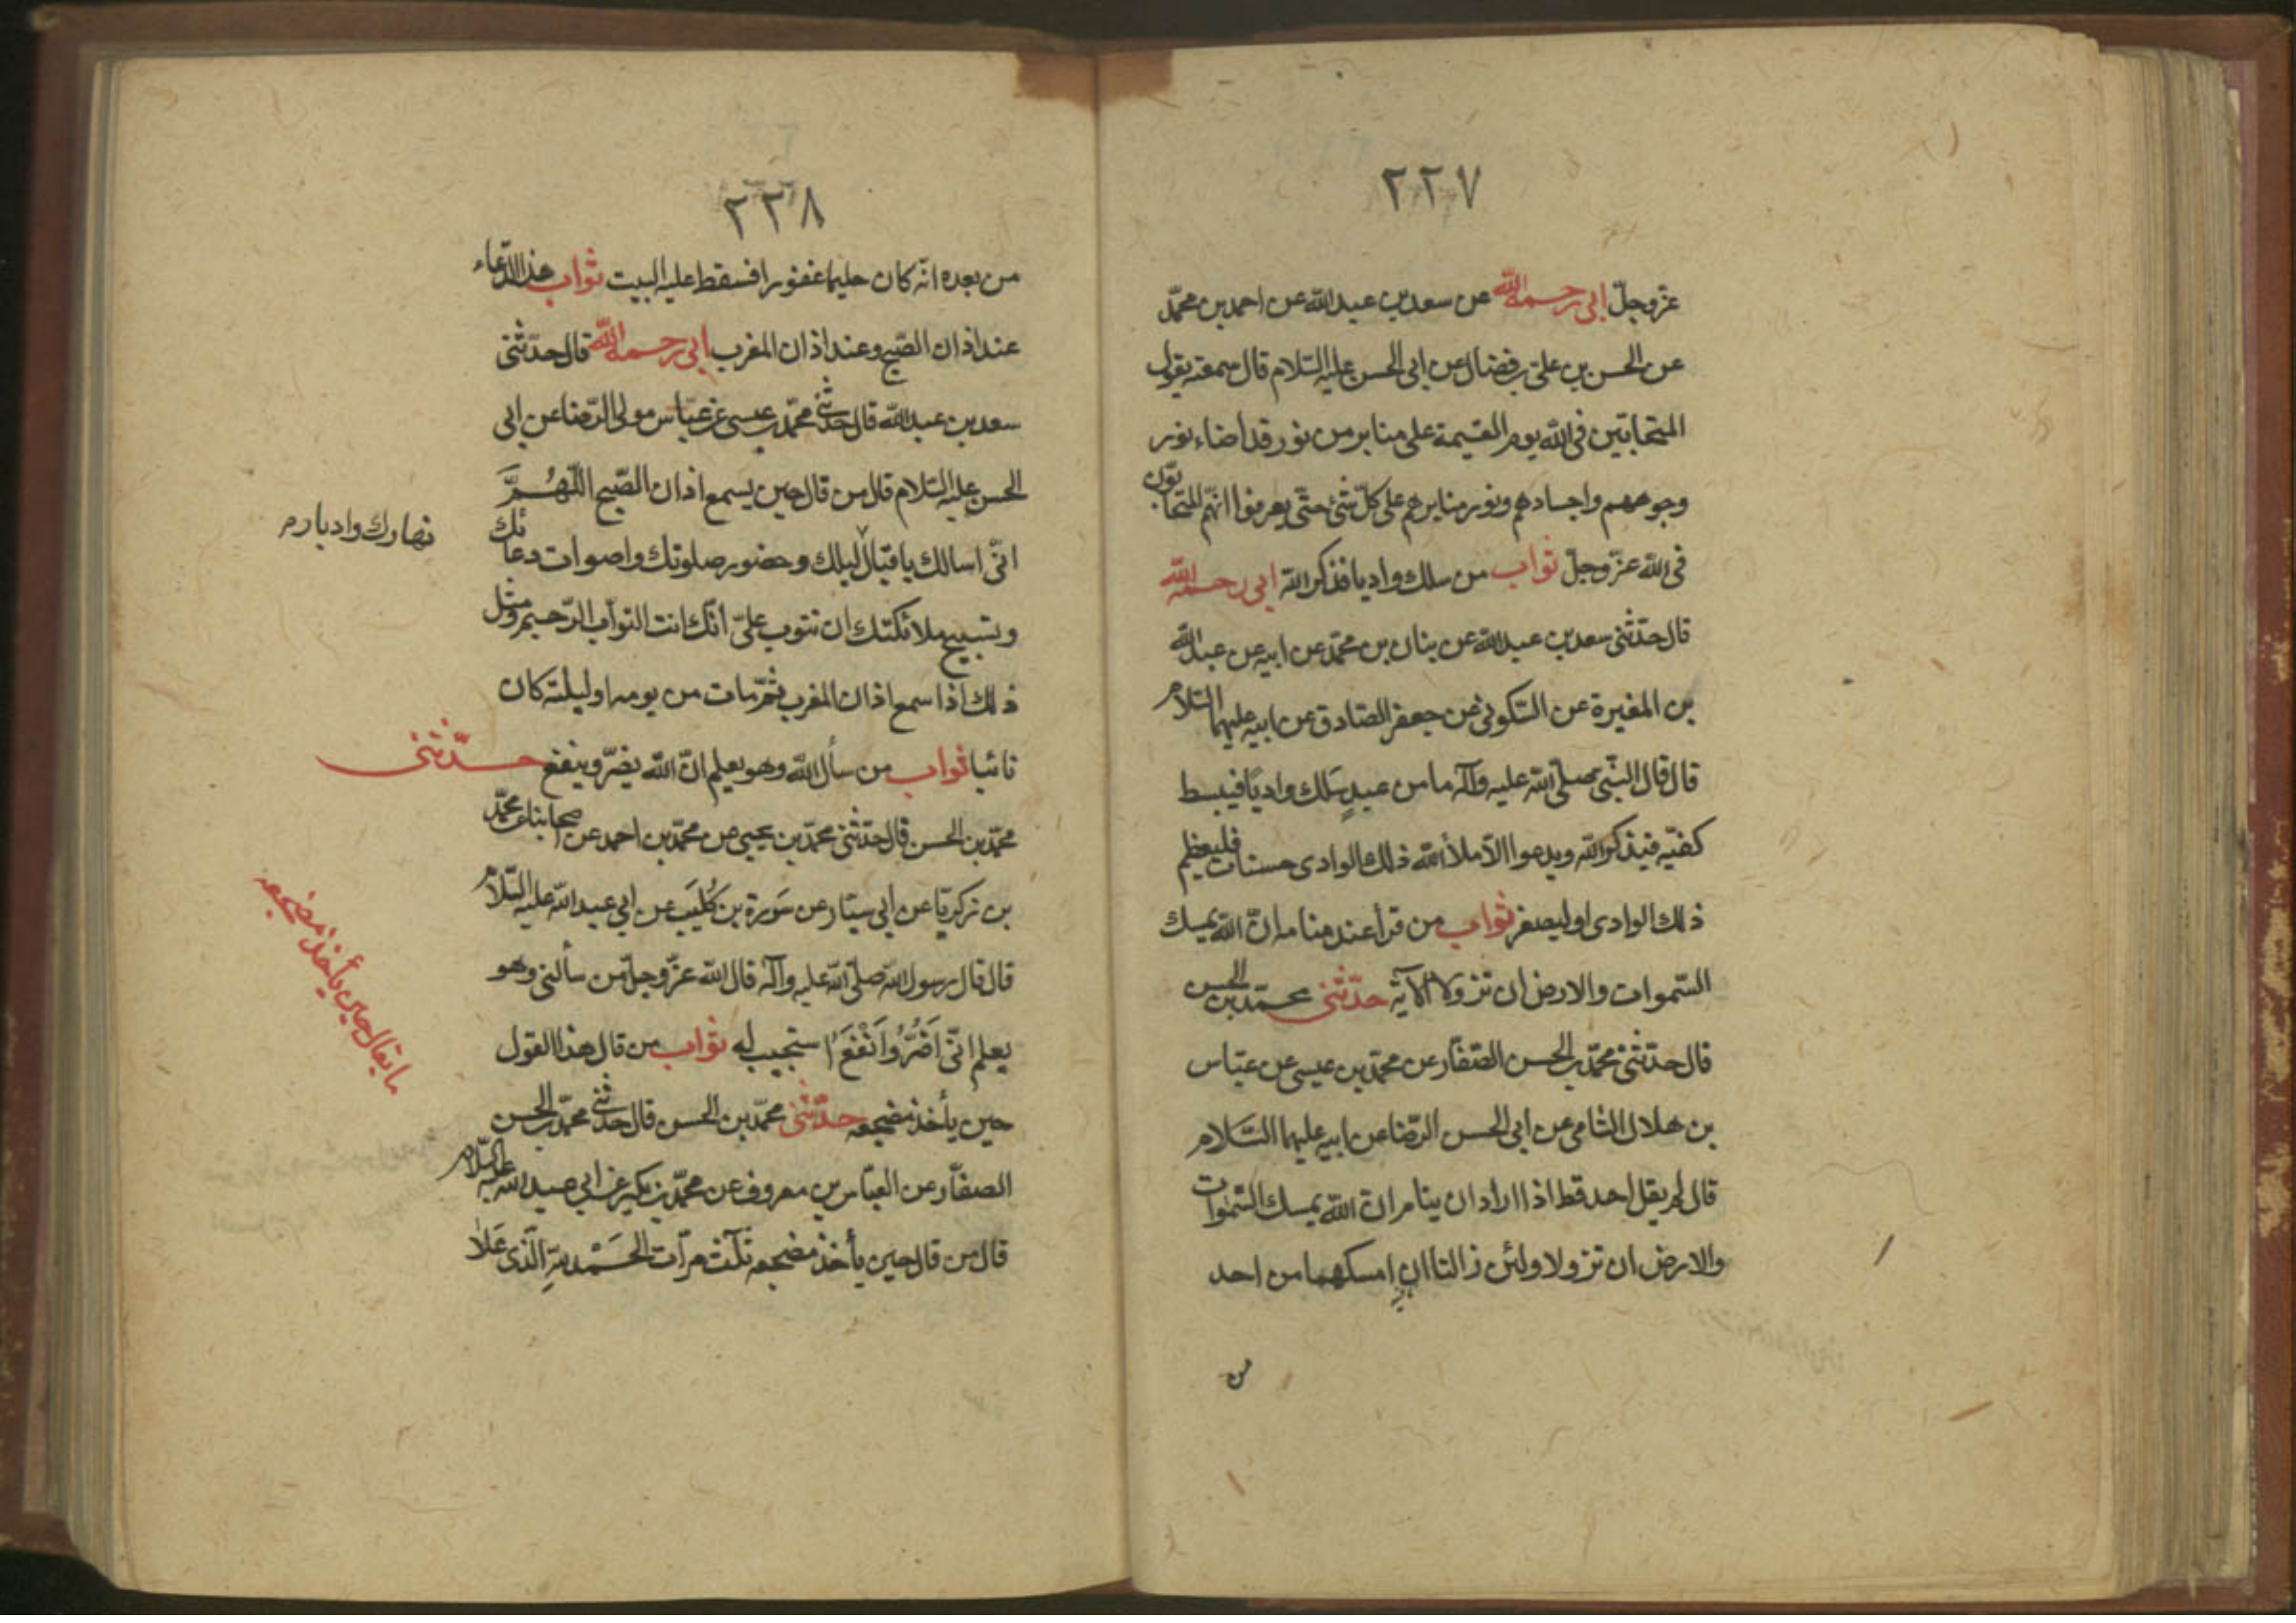 ٢٢٧
عزّ وجلّ ابى رحمه الله عن سعد بن عبد الله عن احمد بن محمّد
عن الحسن بن على بن فضال عن ابى الحسن عليه السّلام قال سمعته يقول
المتحابّين فى الله يوم القيمة على منابر من نور قد اضاء نور
وجوههم واجسادهم ونور منابرهم على كلّ شئ حتّى يعرفوا انّهم المتحابّون
فى الله عزّ وجلّ ثواب من سلك واديا فذكر الله ابى رحمه الله
قال حدّثنى سعد بن عبد الله عن بنان بن محمّد عن ابيه عن عبد الله
بن المغيرة عن السّكونى عن جعفر الصّادق عن ابيه عليهما السّلام
قال قال النّبى صلّى الله عليه وآله ما من عبدٍ سَلك واديًا فيبسط
كفّيه فيذكر الله ويدعوا الّا ملأ الله ذلك الوادى حسنات فليعظم
ذلك الوادى او ليصغر ثواب من قرأ عند منامه انّ الله يمسك
السّموات والارض ان تزولا الآية حدّثنى محمّد بن الحسن
قال حدّثنى محمّد بن الحسن الصّفّار عن محمّد بن عيسى عن عبّاس
بن هلال الشامى عن ابى الحسن الرّضا عن ابيه عليهما السّلام
قال لم يقل احد قط اذا اراد ان ينام انّ الله يمسك السّموات
والارض ان تزولا ولئن زالتا ان امسكهما من احد
من
٢٢٨
من بعده انّه كان حليما غفورا فسقط عليه البيت ثواب هذا الدّعاء
عند اذان الصّبح وعند اذان المغرب ابى رحمه الله قال حدّثنى
سعد بن عبد الله قال حدّثنى محمّد بن عيسى عن عبّاس مولى الرّضا عن ابى
الحسن عليه السّلام قال من قال حين يسمع اذان الصّبح اللّهُمَّ
انّى اسالك باقبال ليلك وحضور صلوتك واصوات دعائك
نهارك وادبار م
وتسبيح ملائكتك ان تتوب علىّ انّك انت التوّاب الرّحيم ومثل
ذلك اذا سمع اذان المغرب ثمّ مات من يومه او ليلته كان
تائبا ثواب من سأل الله وهو يعلم انّ الله يضرّ وينفع حدّثنى
محمّد بن الحسن قال حدّثنى محمّد بن يحيى عن محمّد بن احمد عن اصحابنا عن محمّد
بن زكريّا عن ابى سيّار عن سَورة بن كُلَيب عن ابى عبد الله عليه السّلام
قال قال رسول الله صلّى الله عليه وآله قال الله عزّ وجلّ من سألنى وهو
يعلم انّى اَضُرُّ وَاَنْفَعُ استجيب له ثواب من قال هذا القول
حين يأخذ مضجعه حدّثنى محمّد بن الحسن قال حدّثنى محمّد بن الحسن
ما يقال حين يأخذ مضجعه
الصفّار عن العبّاس بن معروف عن محمّد بن بكير عن ابى عبد الله عليه السّلام
قال من قال حين يأخذ مضجعه ثلث مرّات الحَمْد للهِ الّذى عَلا